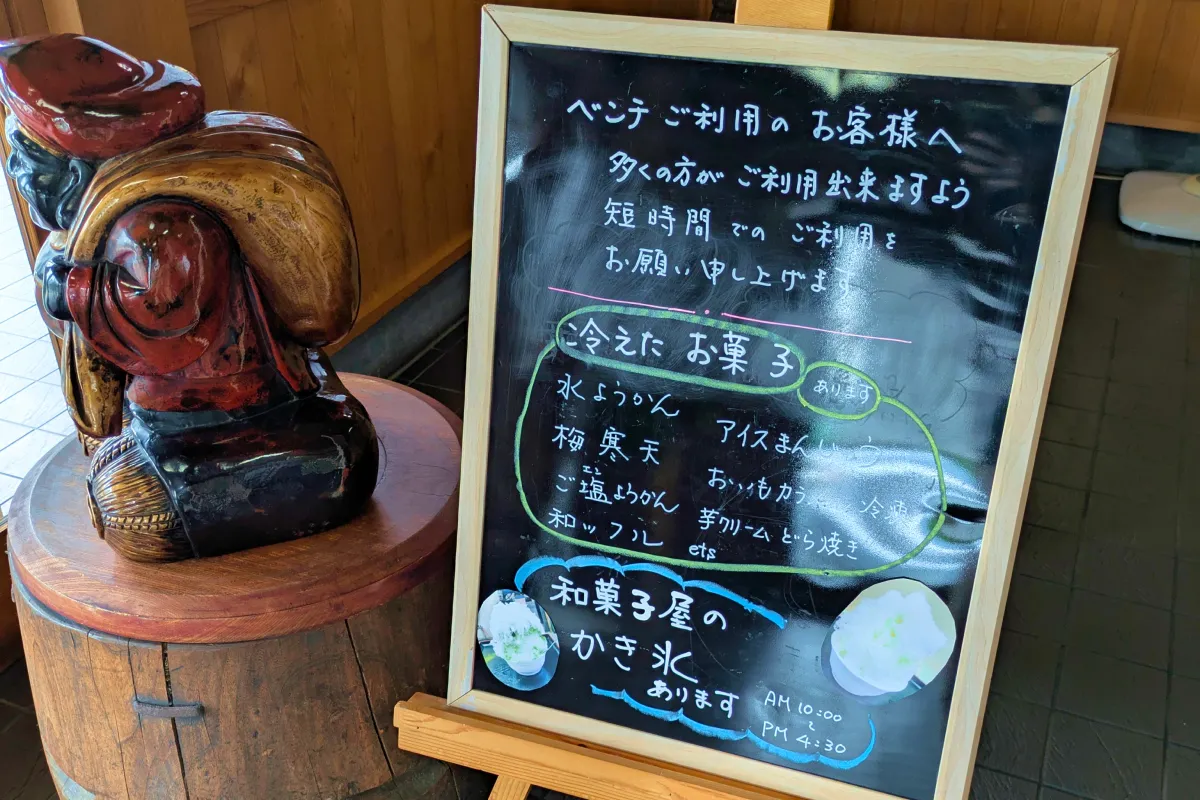 ベンチ ご利用の お客様へ
多くの方が ご利用出来ますよう
短時間 での ご利用を
お願い申し上げます
冷えた お菓子
あります
水ようかん
梅寒天
エン
ご塩ようかん
和ッフル
アイスまん
芋クリームどら焼き
冷凍
ets
和菓子屋の
かき氷
あります
AM 10:00
〜
PM 4:30